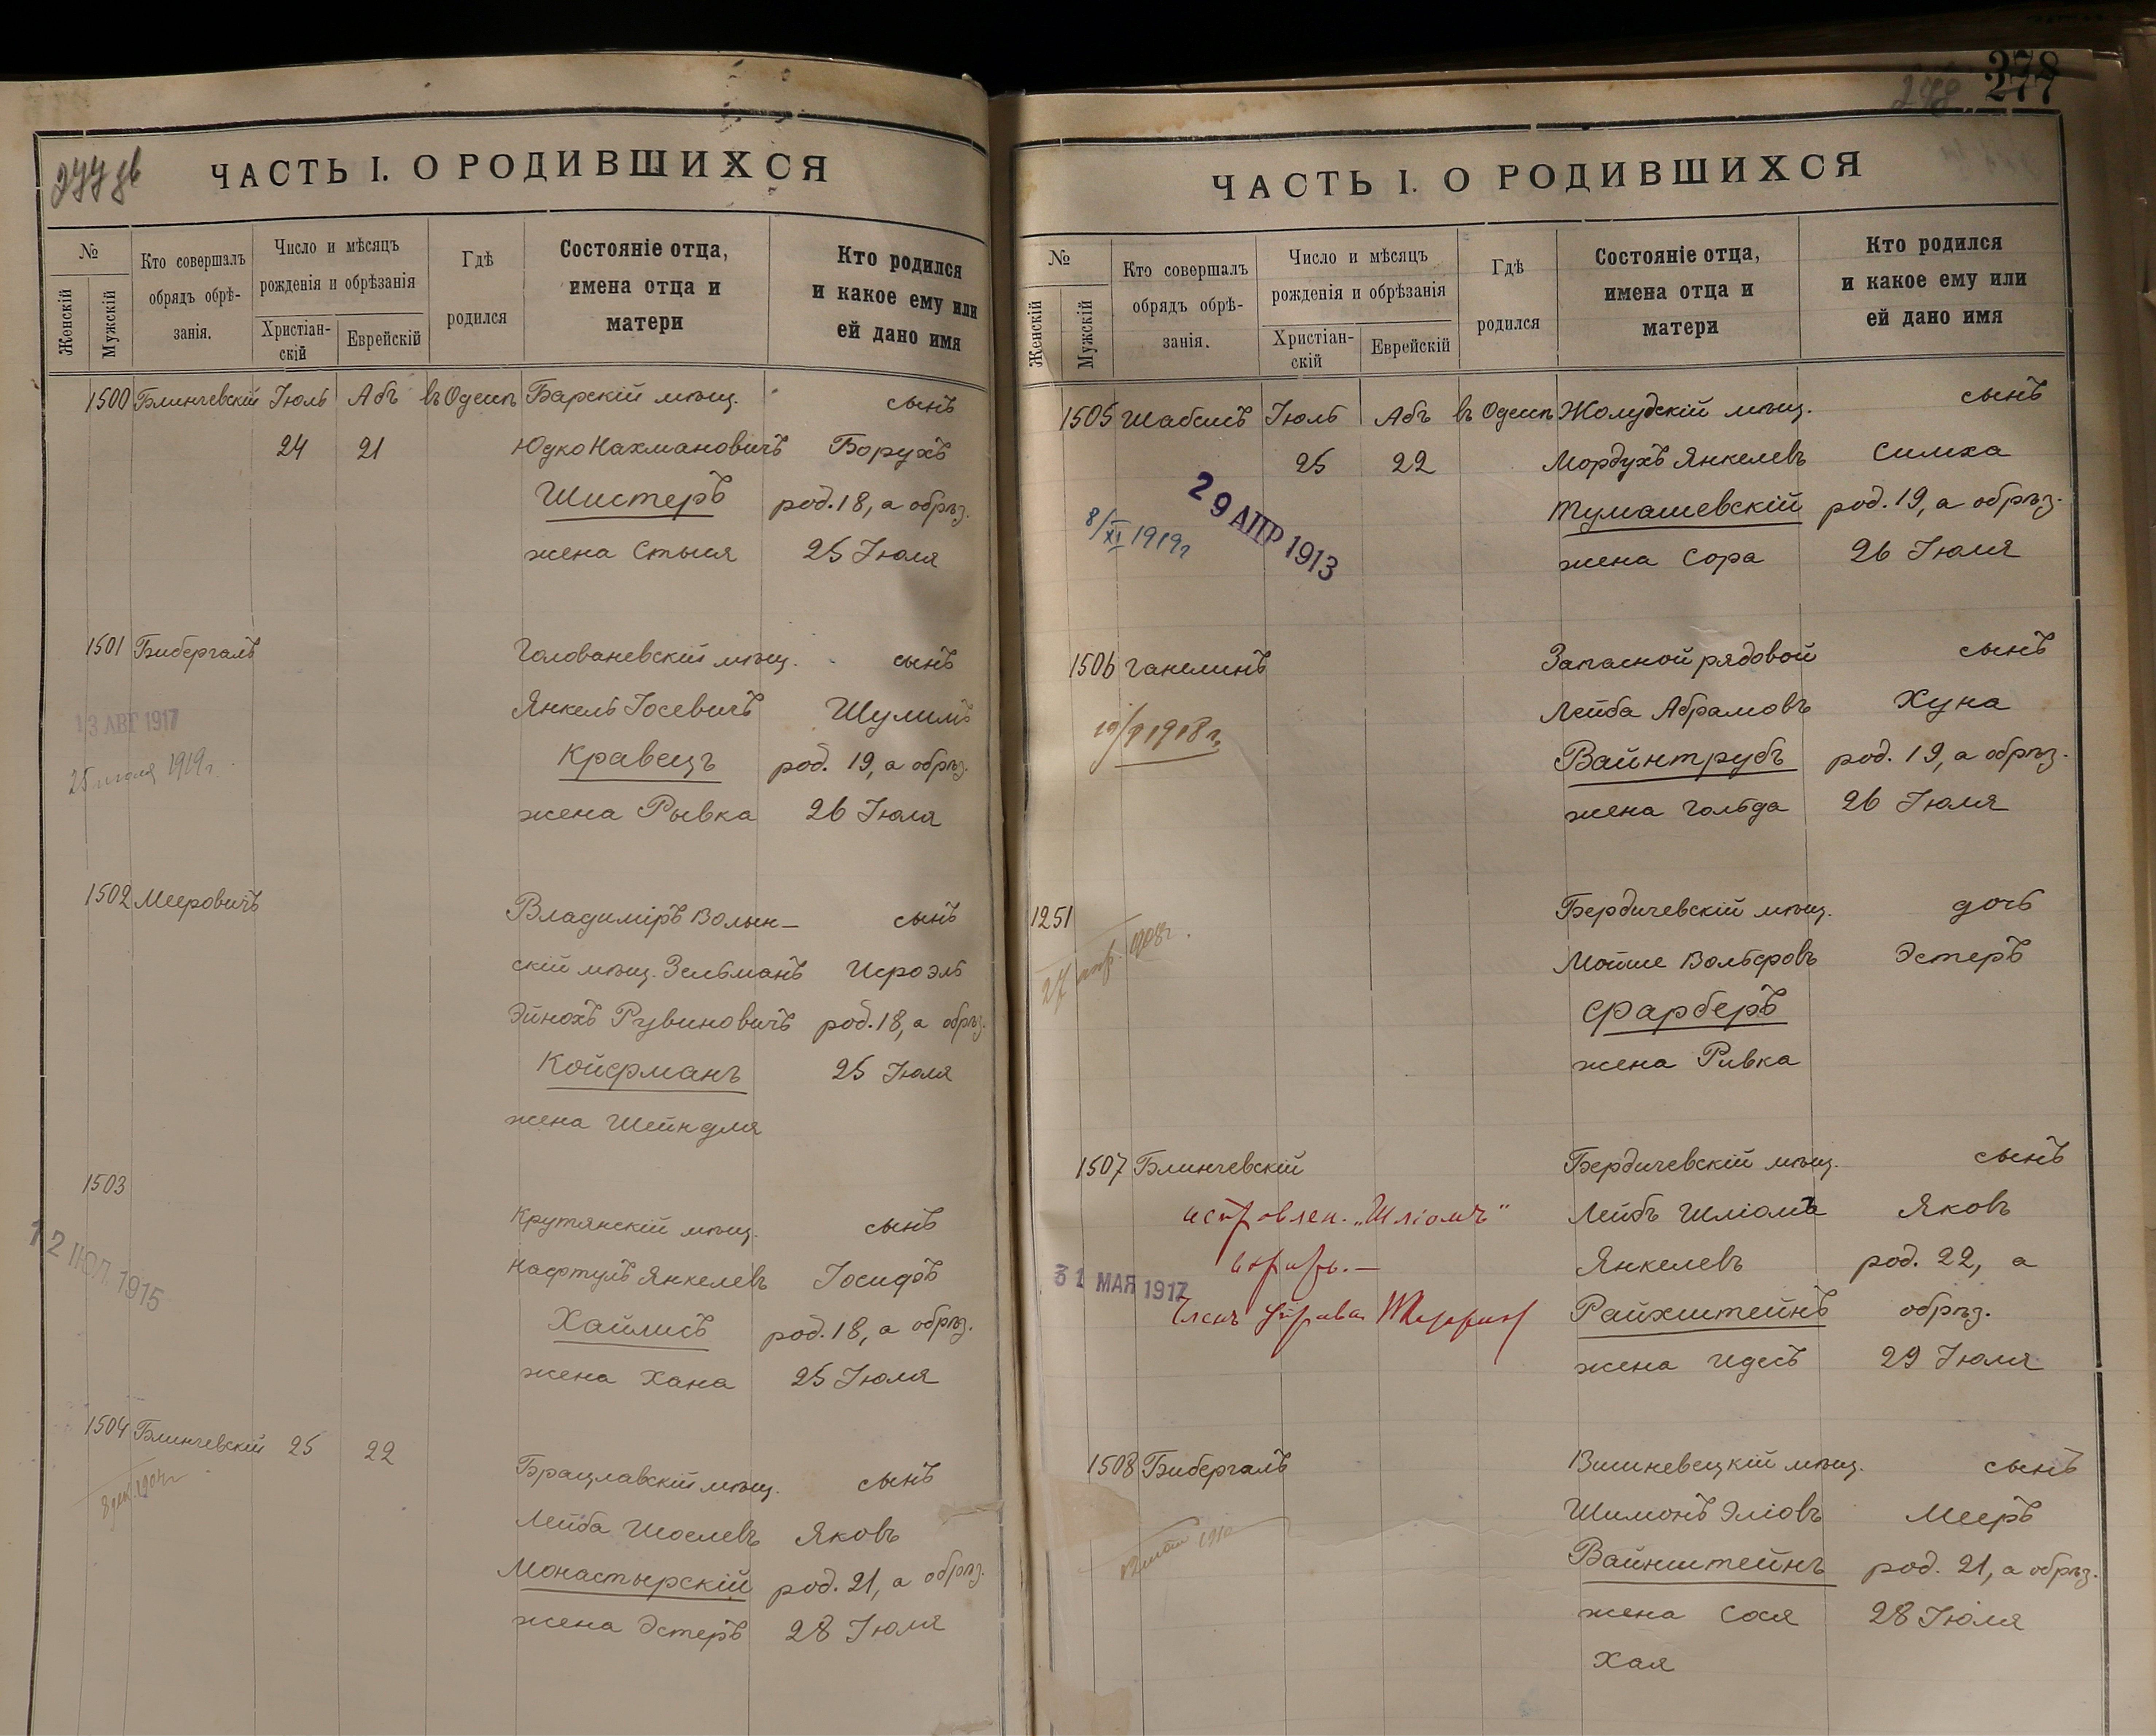 277 об
ЧАСТЬ I. О РОДИВШИХСЯ
№
Женскій
Мужскій
Кто совершалъ
обрядъ обрѣ-
занія.
Число и мѣсяцъ
рожденія и обрѣзанія
Христіан-
скій
Еврейскій
Гдѣ
родился
Состояніе отца,
имена отца и
матери
Кто родился
и какое ему или
ей дано имя
1500 Блинчевскій Іюль Абъ въ Одессѣ Барскій мѣщ. сынъ
24 21 Юдко Нахмановичъ Борухъ
Шистеръ род. 18, а обрѣз.
жена Стыся 25 Іюля
1501 Бибергалъ Голованевскій мѣщ. сынъ
Янкель Іосевичъ Шулимъ
13 АВГ 1917
Кравецъ род. 19, а обрѣз.
25 июля 1919 г.
жена Рывка 26 Іюля
1502 Мееровичъ Владиміръ Волын- сынъ
скій мѣщ. Зельманъ Исроэль
Эйнохъ Рувиновичъ род. 18, а обрѣз.
Койфманъ 25 Іюля
жена Шейндля
1503
Крутянскій мѣщ. сынъ
12 ІЮЛ. 1915
Нафтулъ Янкелевъ Іосифъ
Хайлисъ род. 18, а обрѣз.
жена Хана 25 Іюля
1504 Блинчевскій 25 22 Брацлавскій мѣщ. сынъ
Лейба Шоелевъ Яковъ
Монастырскій род. 21, а обрѣз.
жена Эстеръ 28 Іюля
278
277
ЧАСТЬ I. О РОДИВШИХСЯ
№
Женскій
Мужскій
Кто совершалъ
обрядъ обрѣ-
занія.
Число и мѣсяцъ
рожденія и обрѣзанія
Христіан-
скій
Еврейскій
Гдѣ
родился
Состояніе отца,
имена отца и
матери
Кто родился
и какое ему или
ей дано имя
1505 Шабсисъ Іюль Абъ въ Одессѣ Жолудскій мѣщ. сынъ
25 22 Мордухъ Янкелевъ Симха
29 АПР 1913
8/XI 1919 г
Тумашевскій род. 19, а обрѣз.
жена Сора 26 Іюля
1506 Ганелинъ Запасной рядовой сынъ
Лейба Абрамовъ Хуна
1918 г.
Вайнтрубъ род. 19, а обрѣз.
жена Гольда 26 Іюля
1251 Бердичевскій мѣщ. дочь
27 апр. 1908 г.
Мойше Вольфовъ Эстеръ
Фарберъ
жена Ривка
1507 Блинчевскій Бердичевскій мѣщ. сынъ
исправлен. „Шліомъ" Лейбъ Шліома Яковъ
Янкелевъ род. 22, а
31 МАЯ 1917
Членъ Управы
Райхштейнъ обрѣз.
жена Идесъ 29 Іюля
1508 Бибергалъ Вишневецкій мѣщ. сынъ
Шимонъ Эліовъ Мееръ
Вайнштейнъ род. 21, а обрѣз.
жена Сося 28 Іюля
Хая